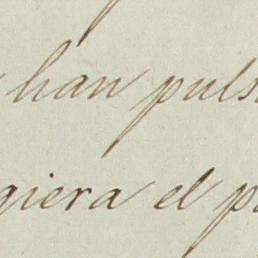 han puls
giera el p